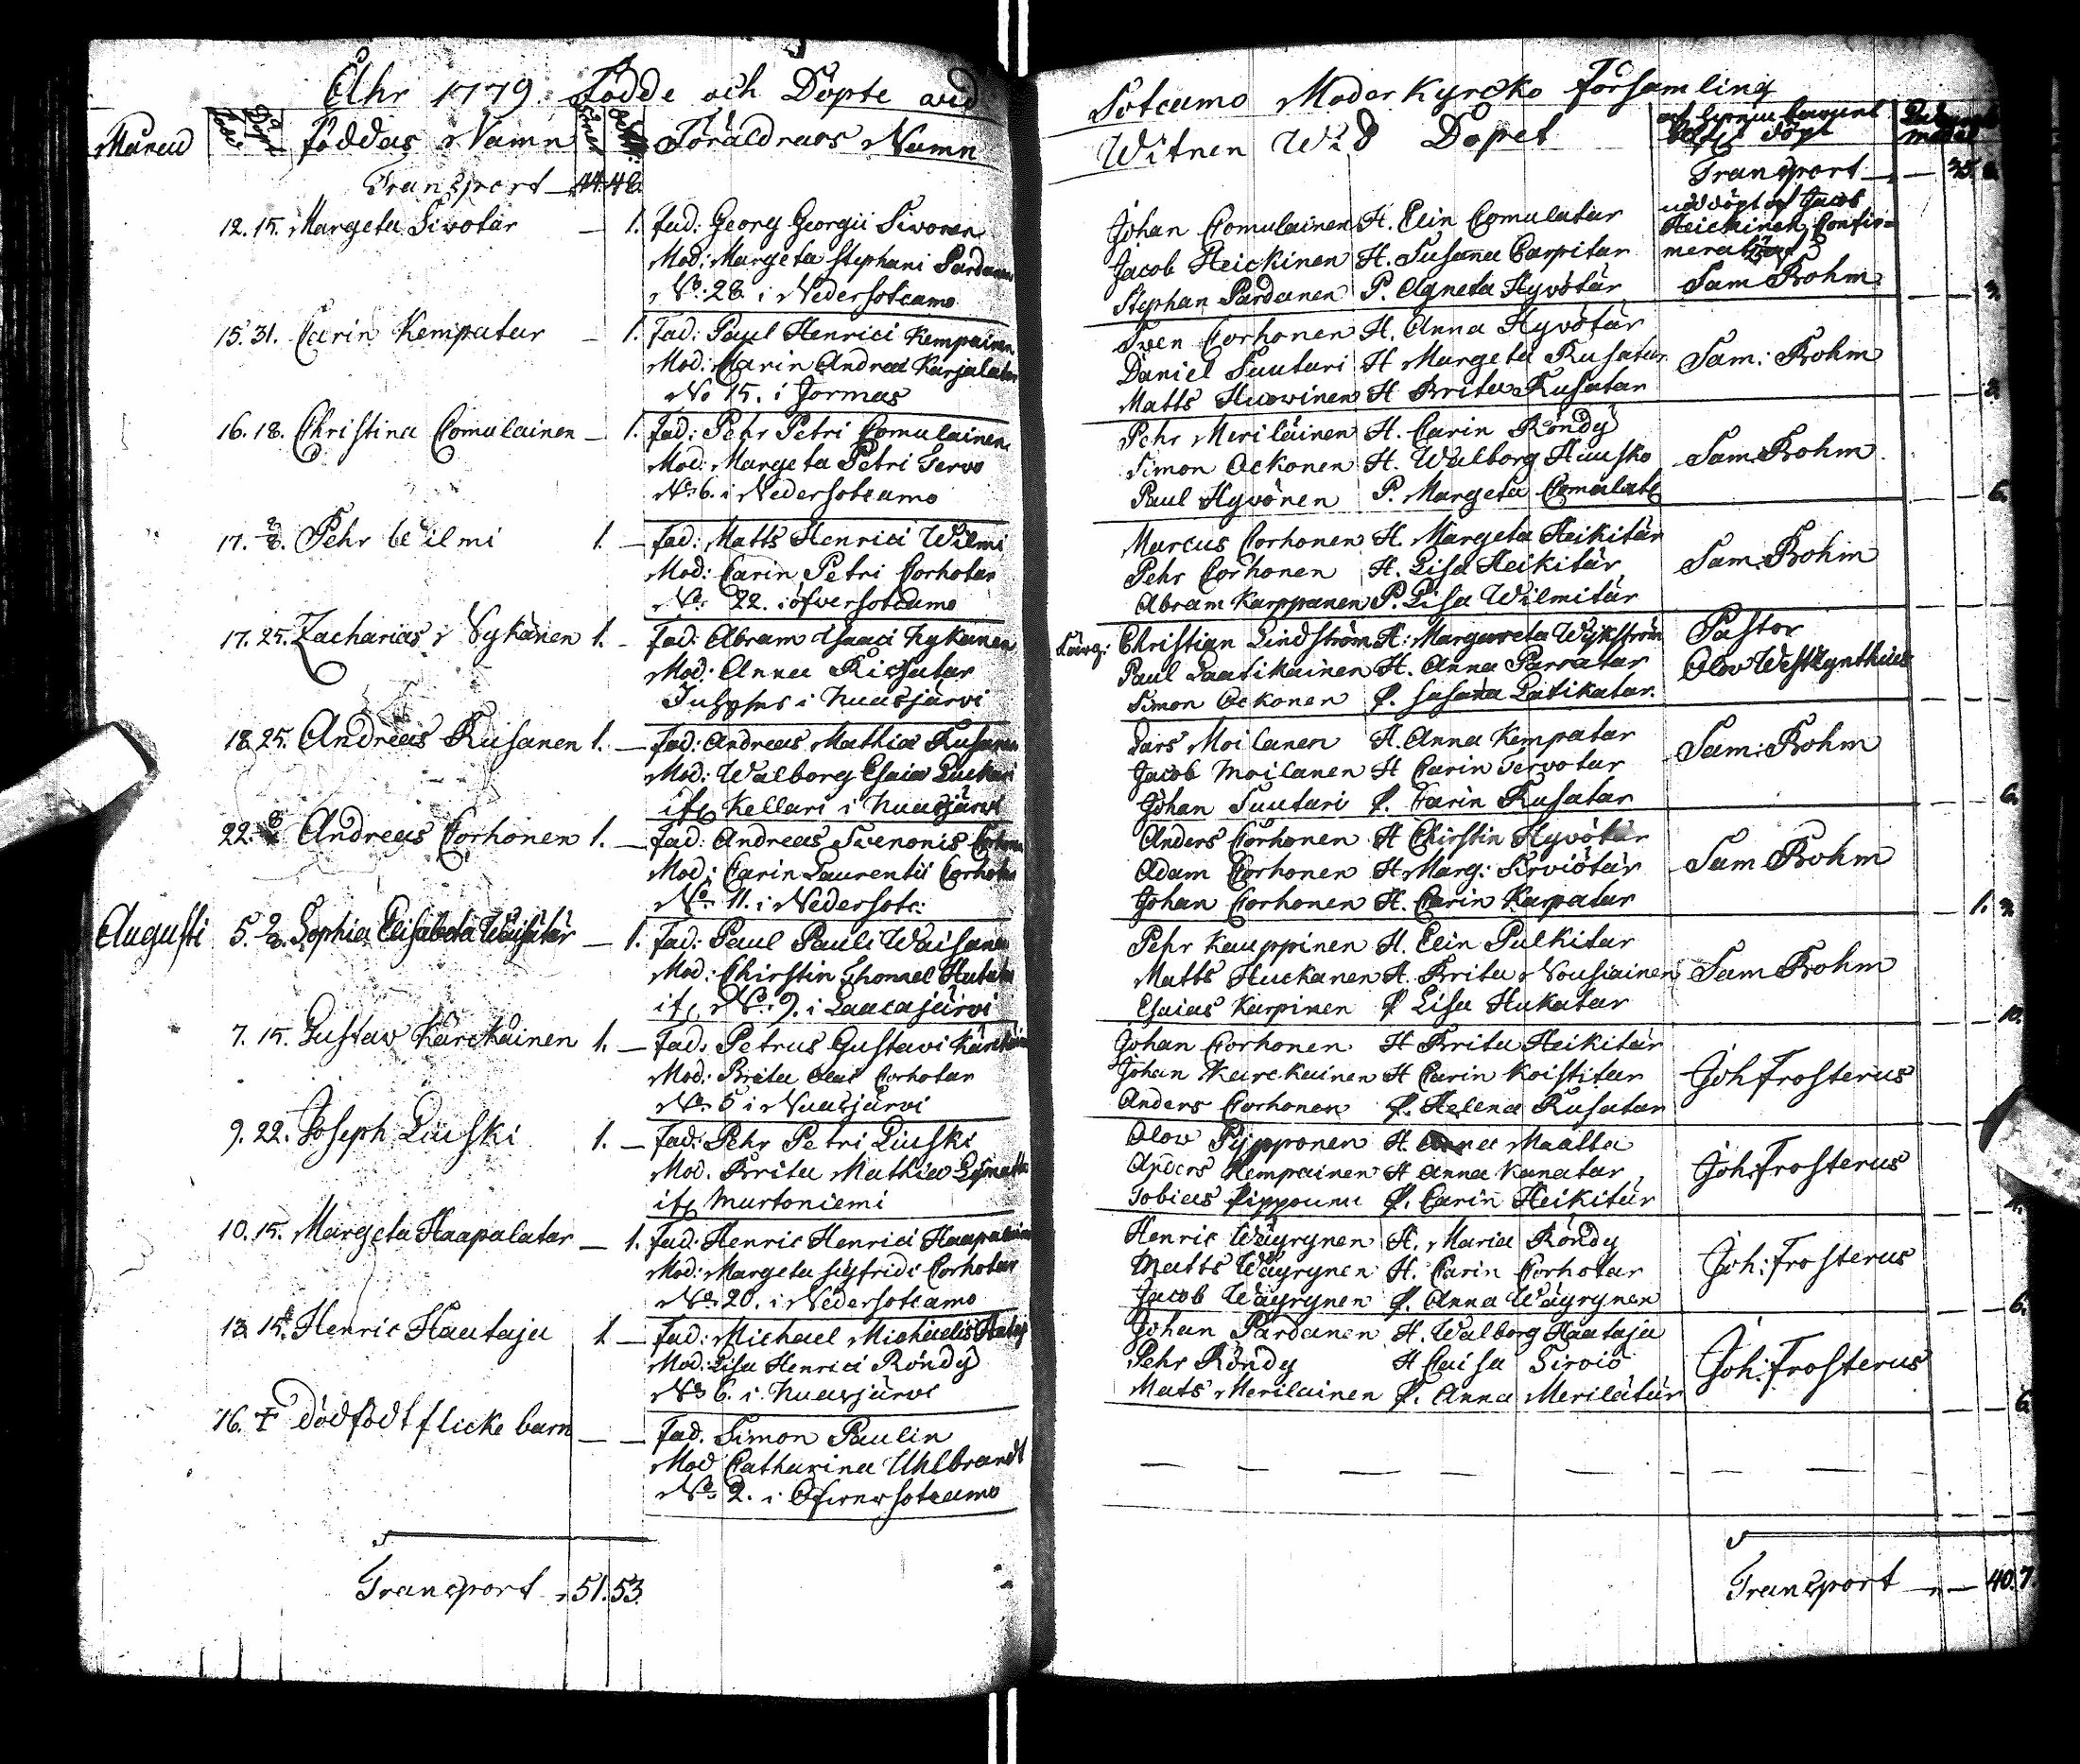 Åhr 1779. Födde och Döpte wid
Månad Födde Döpte Föddas Namn Söner Föräldrars Namn
Transport 44. 48.
12. 15. Margeta Sivotar — 1. Fad: Georg Georgii Sivonen
Mod: Margeta Stephani
No: 28. i Nedersotcamo
15. 31. Carin Kempatar — 1. Fad: Paul Henrici Kempainen
Mod: Marin Andreæ Karjalatar
No 15. i Jormas
16. 18. Christina Comulainen — 1. Fad: Pehr Petri Comulainen
Mod: Margeta Petri Tervo
No 6. i Nedersotcamo
17. Pehr Wilmi 1. — Fad: Matts Henrici Wilmi
Mod: Carin Petri Corhotar
No: 22. i öfversotcamo
17. 25. Zacharias Nykänen 1. — Fad: Abram Isaaci Nykänen
Mod: Anna
Inhyses i Nuasjärvi
18. 25. Andreas Rusanen 1. — Fad: Andreas Mathiæ Rusanen
Mod: Walborg Esaiæ
Kellari i Nuasjärvi
22. Andreas Corhonen 1. — Fad: Andreas Svenonis
Mod: Carin Laurentii Corhotar
No 11. i Nedersotc:
Augusti 5. Sophia Elisabeta — 1. Fad: Paul Pauli Waisanen
Mod: Chirstin Thomæ
No: 9. i Laacajärvi
7. 15. Gustav Kärckäinen 1. — Fad: Petrus Gustavi
Mod: Brita Olai Corhotar
No 5 i Nuasjärvi
9. 22. Joseph Piuski 1. — Fad: Pehr Petri Piuski
Mod. Brita Mathiæ
Murtoniemi
10. 15. Margeta Haapalatar — 1. Fad: Henric Henrici
Mod: Margeta Sigfridi Corhotar
No: 20. i Nedersotcamo
13. 15. Henric Hautaju 1. — Fad: Michael Michaelis
Mod: Lisa Henrici Röndy
No 6. i Nuasjärvi
16. † dödfödt flicke barn — — Fad. Simon Paulin
Mod Catharina Uhlbrandt
No: 2. i Öfwersotcamo
Transport 51. 53.
Sotcamo Moderkyrcko Församling
Witnen Wid Dopet
Transport — — 35.
Johan Comulainen H. Elin Comulatar nöddöpt af Jacob
Jacob Heickinen H. Susana Carpitar Heickinen, Confir=
Stephan Pardanen P. Agneta Hyvötär merat af Sam Bohm
Sven Corhonen H. Anna Hyvötär
Daniel Suutari H Margeta Rusatar Sam: Bohm
Matts Huowinen H Brita Rusatar
Pehr Meriläinen H. Carin Röndy
Simon Ackonen H. Walborg Huusko Sam. Bohm
Paul Hyvönen P. Margeta
Marcus Corhonen H. Margeta Heikitär
Pehr Corhonen H. Lisa Heikitär Sam. Bohm
Abram Karppanen P. Lisa Wilmitär
Christian Lindström H: Margareta Pastor
Paul Laatikainen H. Anna Parratar Olov Westzynthius
Simon Ackonen P. Susana Latikatar.
Lars Moilanen H. Anna Kempatar
Jacob Moilanen H Carin Tervotar Sam. Bohm
Johan Suutari P. Carin Rusatar 6.
Anders Corhonen H Chirstin Hyvötär
Adam Corhonen H. Marg: Sirviötär Sam Bohm
Johan Corhonen H. Carin Karpatar 1.
Pehr Kauppinen H. Elin Pulkitar
Matts Huckanen H. Brita Nousiainen Sam Bohm
Esaias Karpinen P Lisa Hukatar 10.
Johan Corhonen H Brita Heikitär
Johan Karckainen H Carin Koistitar Joh Frosterus
Anders Corhonen P. Helena Rusatar
Olov Pypponen H. Anna Maatta
Anders Kempainen H Anna Kanatar Joh: Frosterus
Tobias P. Carin Heikitär
Henric Wäyrynen H. Maria Röndy
Matts Wäyrynen H. Carin Corhotar Joh: Frosterus
Jacob Wäyrynen P. Anna Wäyrynen 6.
Johan Pardanen H. Walborg Hautaju
Pehr Röndy H Caisa Sirviö Joh: Frosterus
Mats Merilainen P. Anna Merilätär 6.
Transport — 40. 7.